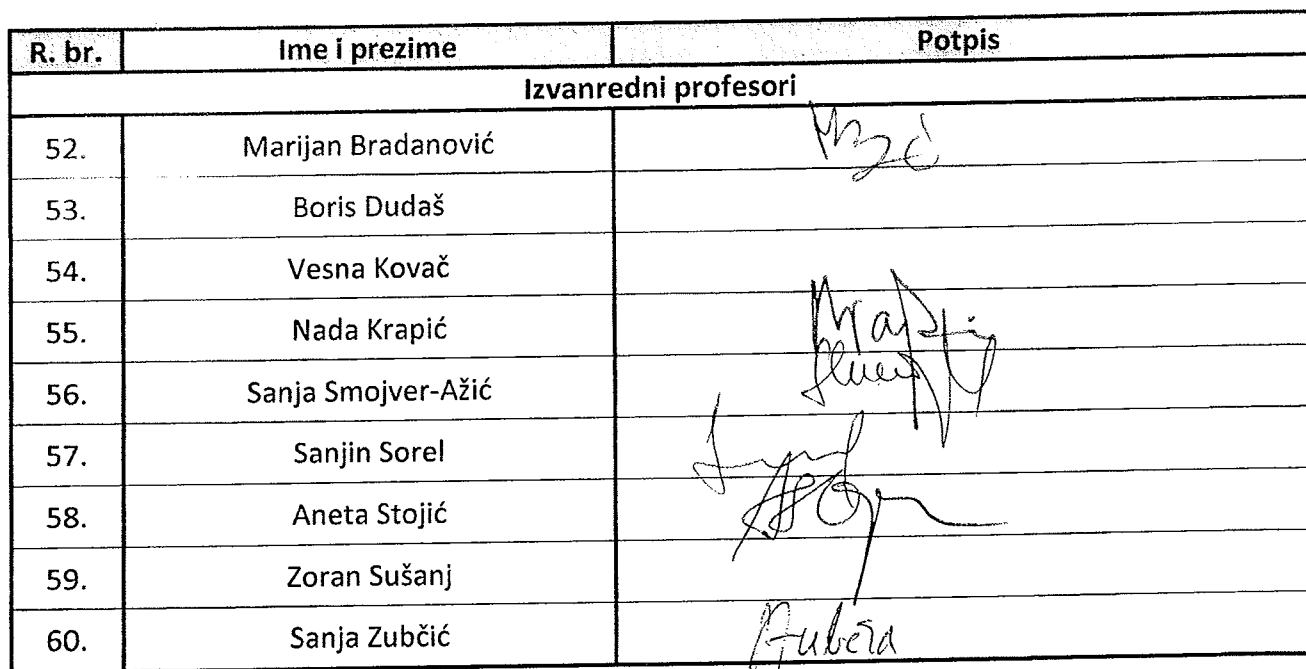 R. br. Ime i prezime Potpis
Izvanredni profesori
52. Marijan Bradanović
53. Boris Dudaš
54. Vesna Kovač
55. Nada Krapić
56. Sanja Smojver-Ažić
57. Sanjin Sorel
58. Aneta Stojić
59. Zoran Sušanj
60. Sanja Zubčić